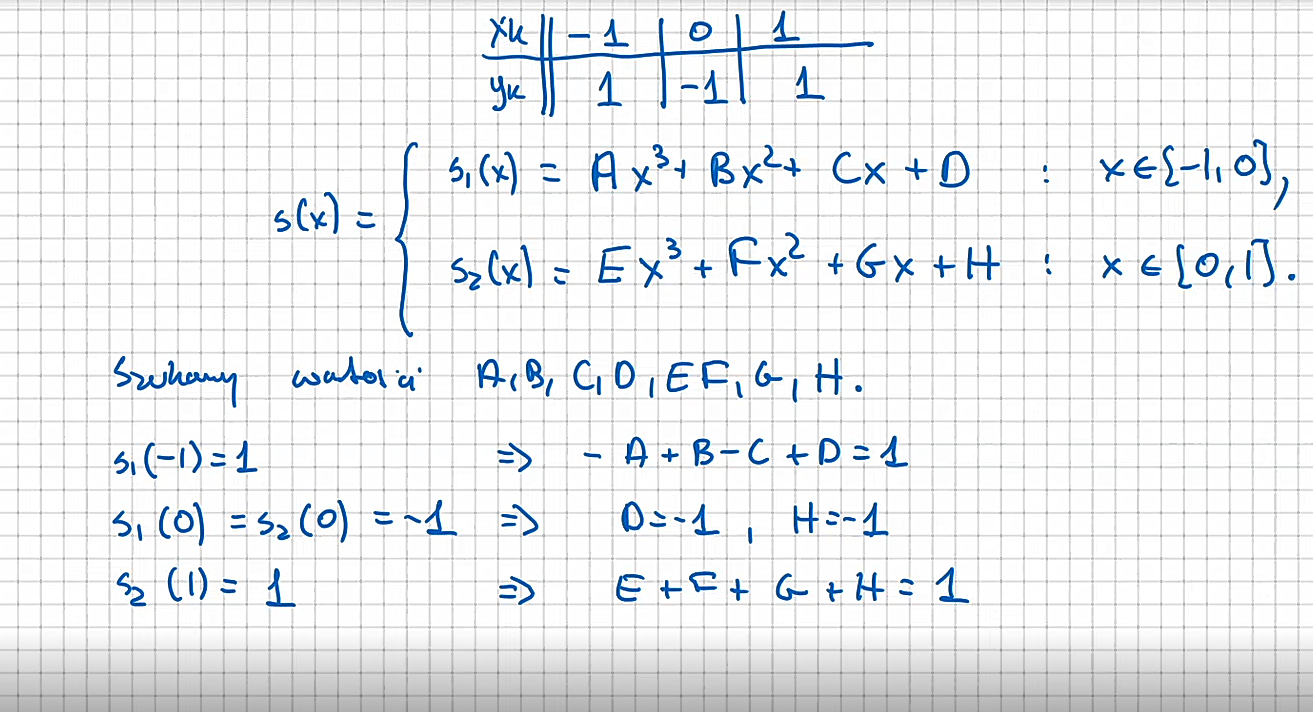 xₖ || -1 | 0 | 1
yₖ || 1 | -1 | 1
s₁(x) = Ax³ + Bx² + Cx + D : x ∈ [-1, 0],
s(x) =
s₂(x) = Ex³ + Fx² + Gx + H : x ∈ [0, 1].
Szukamy wartości A, B, C, D, E F, G, H.
s₁(-1) = 1 => -A + B - C + D = 1
s₁(0) = s₂(0) = -1 => D = -1, H = -1
s₂(1) = 1 => E + F + G + H = 1